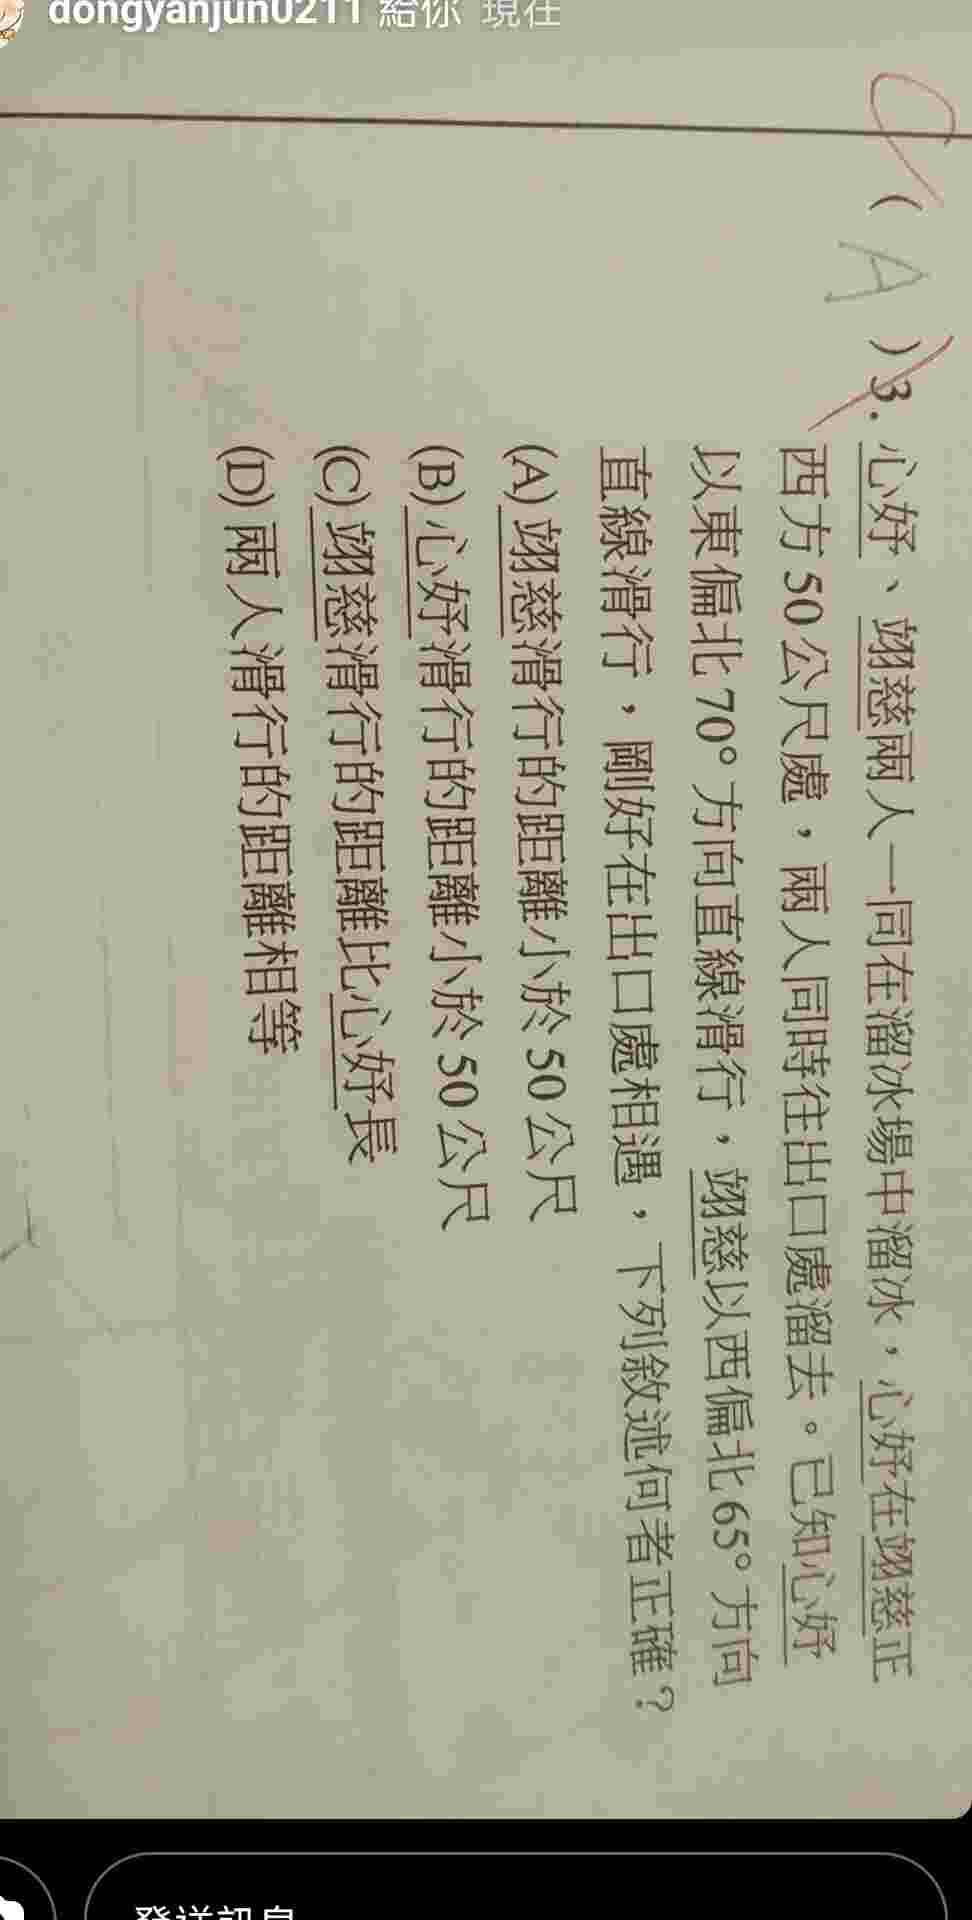 dongyanjun0211 給你 現在
C
( A )3. 心妤、翊慈兩人一同在溜冰場中溜冰，心妤在翊慈正
西方 50 公尺處，兩人同時往出口處溜去。已知心妤
以東偏北 70° 方向直線滑行，翊慈以西偏北 65° 方向
直線滑行，剛好在出口處相遇，下列敘述何者正確？
(A) 翊慈滑行的距離小於 50 公尺
(B) 心妤滑行的距離小於 50 公尺
(C) 翊慈滑行的距離比心妤長
(D) 兩人滑行的距離相等
發送訊息